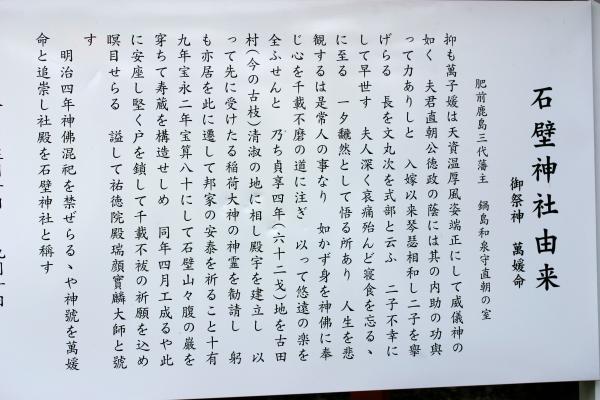 石壁神社由来
御祭神　萬媛命
肥前鹿島三代藩主　鍋島和泉守直朝の室
抑も萬子媛は天資温厚風姿端正にして威儀神の
如く　夫君直朝公徳政の蔭には其の内助の功與
って力ありしと　入嫁以来琴瑟相和し二子を擧
げらる　長を文丸次を式部と云ふ　二子不幸に
して早世す　夫人深く哀痛殆んど寝食を忘るゝ
に至る　一夕飜然として悟る所あり　人生を悲
観するは是常人の事なり　如かず身を神佛に奉
じ心を千載不磨の道に注ぎ　以って悠遠の楽を
全ふせんと　乃ち貞享四年（六十二戈）地を古田
村（今の古枝）清淑の地に相し殿宇を建立し　以
って先に受けたる稲荷大神の神霊を勧請し　躬
も亦居を此に遷して邦家の安泰を祈ること十有
九年宝永二年宝算八十にして石壁山々腹の巌を
穿ちて寿蔵を構造せしめ　同年四月工成るや此
に安座し堅く戸を鎖して千載不祓の祈願を込め
瞑目せらる　謚して祐徳院殿瑞顔實麟大師と號
す
明治四年神佛混祀を禁ぜらるゝや神號を萬媛
命と追崇し社殿を石壁神社と稱す